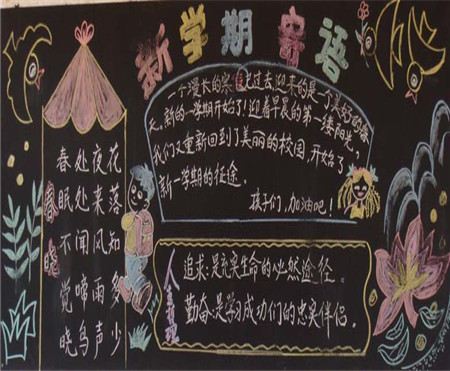 新学期寄语
一个漫长的寒假已过去,迎来的是一个美好的春
天。新的一学期开始了!迎着早晨的第一缕阳光,
我们又重新回到了美丽的校园,开始了
新一学期的征途。
孩子们,加油吧!
春晓
春眠不觉晓
处处闻啼鸟
夜来风雨声
花落知多少
追求:是充实生命的必然途径。
勤奋:是学习成功们的忠实伴侣。